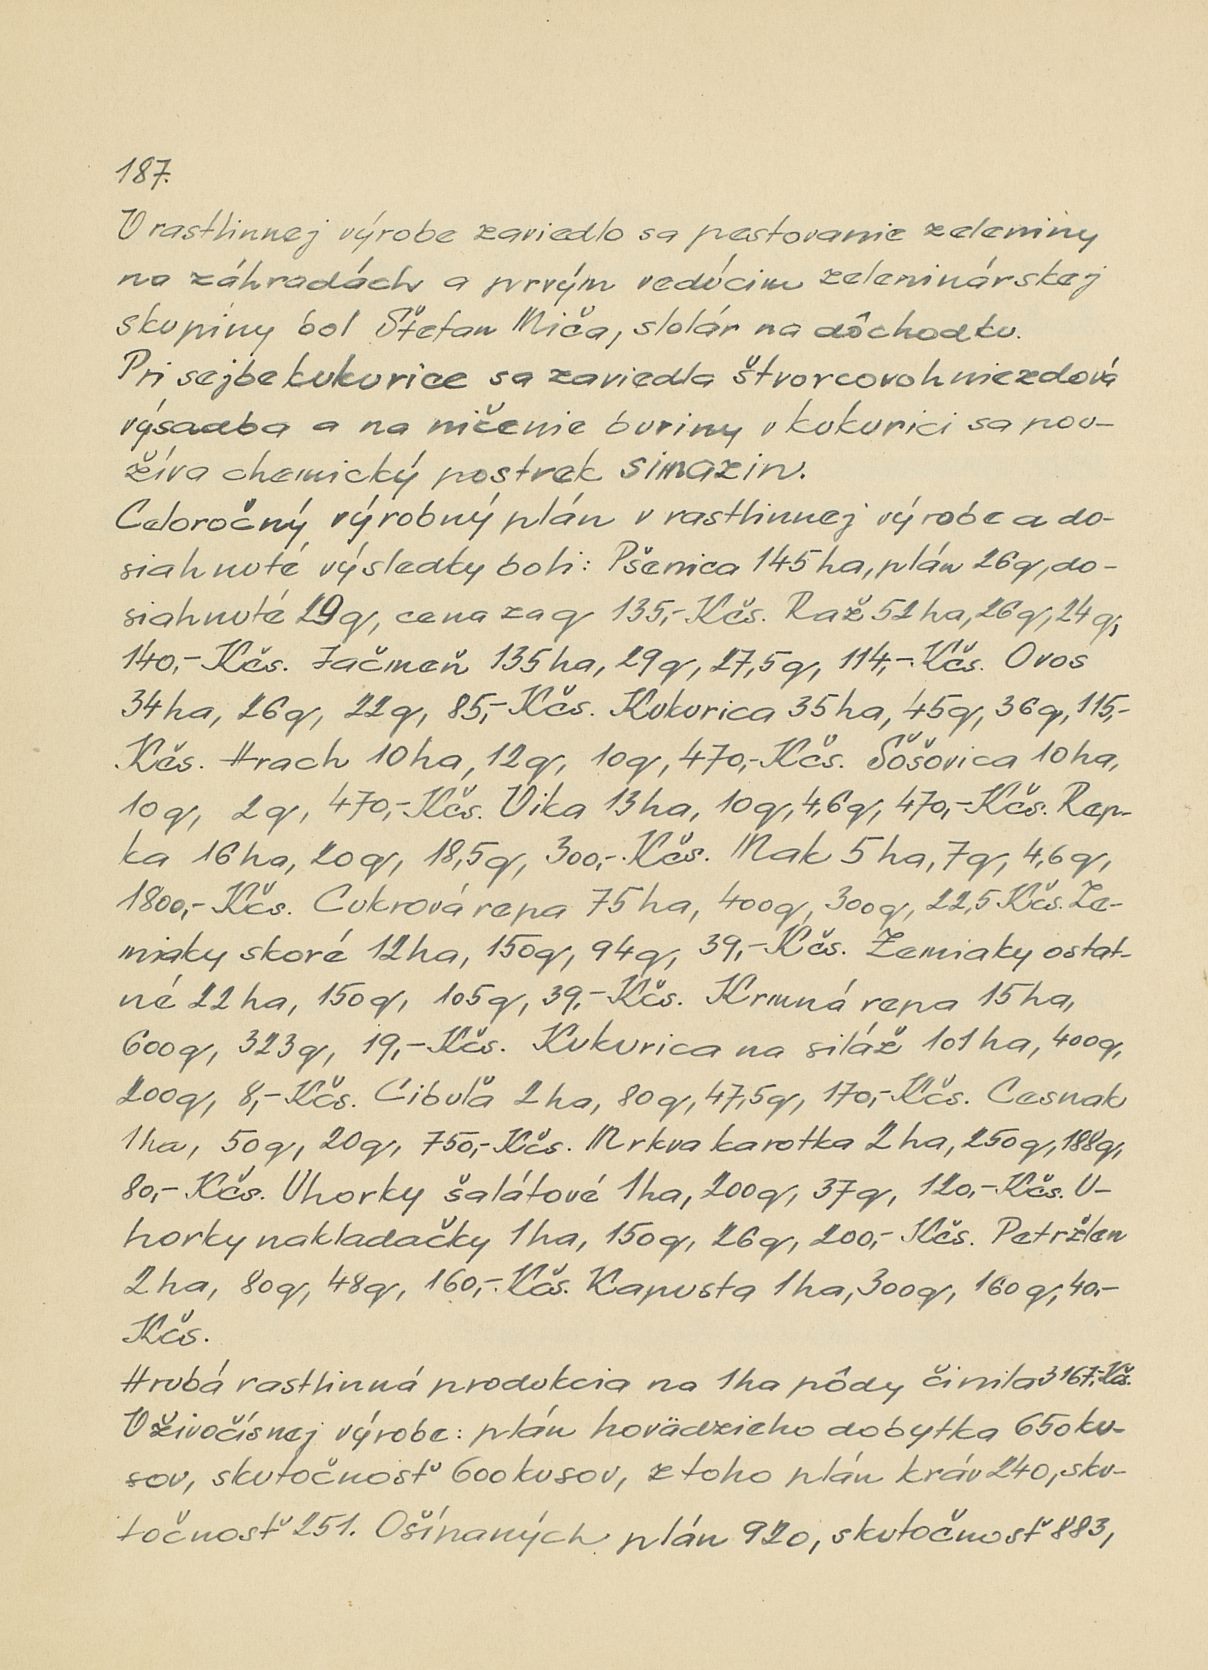 187.
V rastlinnej výrobe zaviedlo sa pestovanie zeleniny
na záhradách a prvým vedúcim zeleninárskej
skupiny bol Štefan Miča, stolár na dôchodku.
Pri sejbe kukurice sa zaviedla štvorcovohniezdová
výsadba a na ničenie buriny v kukurici sa pou-
žíva chemický postrek Simazin.
Celoročný výrobný plán v rastlinnej výrobe a do-
siahnuté výsledky boli: Pšenica 145 ha, plán 26q, do-
siahnuté 29q, cena za q 135,- Kčs. Raž 52 ha, 26q, 24q,
140,- Kčs. Jačmeň 135 ha, 29q, 27,5q, 114,- Kčs. Ovos
34 ha, 26q, 22q, 85,- Kčs. Kukurica 35 ha, 45q, 36q, 115,-
Kčs. Hrach 10 ha, 12q, 10q, 470,- Kčs. Šošovica 10 ha,
10q, 2q, 470,- Kčs. Vika 13 ha, 10q, 4,6q, 470,- Kčs. Rep-
ka 16 ha, 20q, 18,5q, 300,- Kčs. Mak 5 ha, 7q, 4,6q,
1800,- Kčs. Cukrová repa 75 ha, 400q, 300q, 22,5 Kčs. Ze-
miaky skoré 12 ha, 150q, 94q, 39,- Kčs. Zemiaky ostat-
né 22 ha, 150q, 105q, 39,- Kčs. Krmná repa 15 ha,
600q, 323q, 19,- Kčs. Kukurica na siláž 101 ha, 400q,
200q, 8,- Kčs. Cibuľa 2 ha, 80q, 47,5q, 170,- Kčs. Cesnak
1 ha, 50q, 20q, 750,- Kčs. Mrkva karotka 2 ha, 250q, 188q,
80,- Kčs. Uhorky šalátové 1 ha, 200q, 37q, 120,- Kčs. U-
horky nakladačky 1 ha, 150q, 26q, 200,- Kčs. Petržlen
2 ha, 80q, 48q, 160,- Kčs. Kapusta 1 ha, 300q, 160q, 40,-
Kčs.
Hrubá rastlinná produkcia na 1 ha pôdy činila 3167,- Kčs.
V živočísnej výrobe: plán hovädzieho dobytka 650 ku-
sov, skutočnosť 600 kusov, z toho plán kráv 240, sku-
točnosť 251. Ošípaných plán 920, skutočnosť 883,